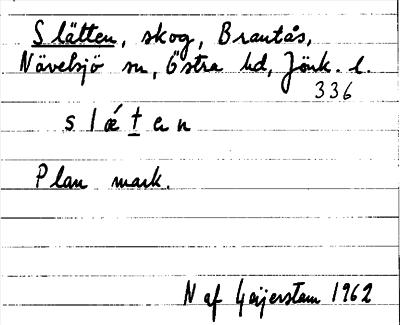 Slätten, skog, Brantås,
Nävelsjö sn, Östra hd, Jönk. l.
336
slǽten
Plan mark.
N af Geijerstam 1962